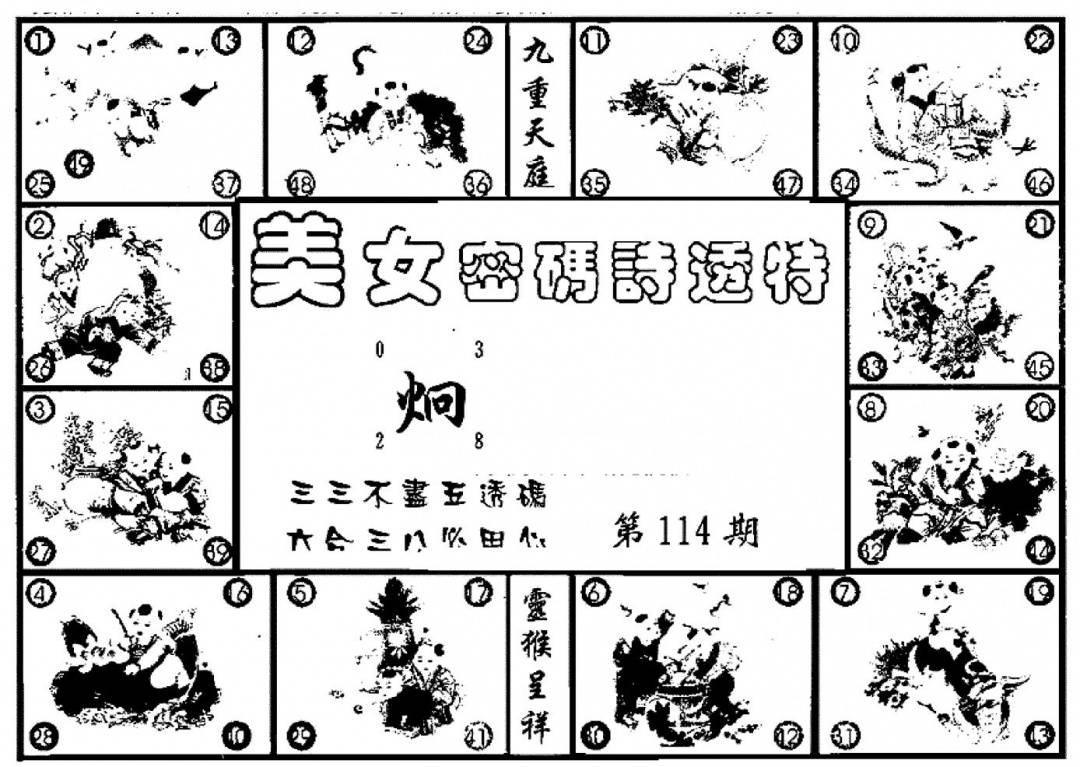 ① ⑬
㊾
㉕ ㊲
⑫ ㉔
㊽ ㊱
九重天庭
⑪ ㉓
㉟ ㊼
⑩ ㉒
㉞ ㊻
② ⑭
㉖ ㊳
美女密碼詩透特
0 3
炯
2 8
三三不盡五透碼
六合三八
第114期
⑨ ㉑
㉝ ㊺
③ ⑮
㉗ ㊴
⑧ ⑳
㉜ ㊹
④ ⑯
㉘ ㊵
⑤ ⑰
㉙ ㊶
靈猴呈祥
⑥ ⑱
㉚ ㊷
⑦ ⑲
㉛ ㊸